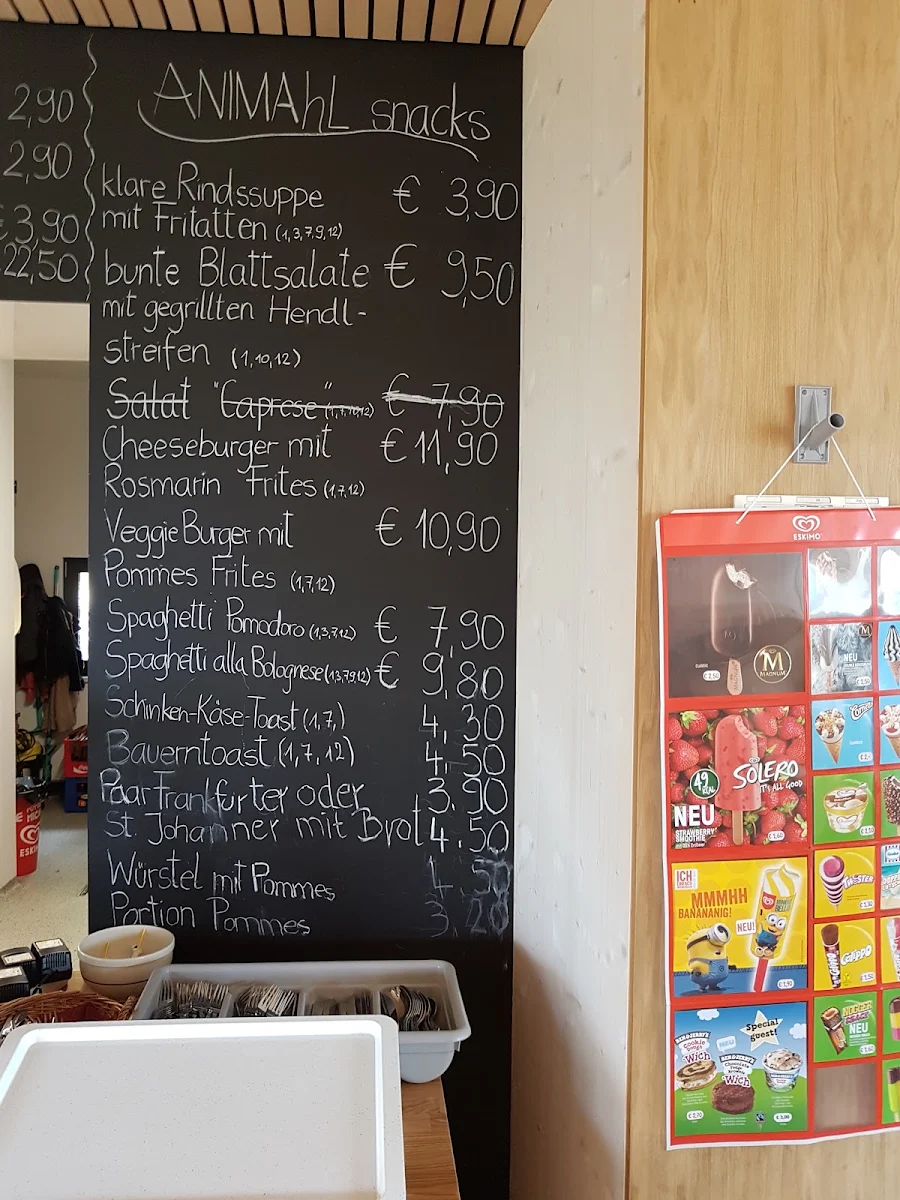 2,90
2,90
€ 3,90
22,50
ANIMAhL snacks
klare Rindssuppe € 3,90
mit Fritatten (1,3,7,9,12)
bunte Blattsalate € 9,50
mit gegrillten Hendl-
streifen (1,10,12)
Salat "Caprese" € 7,90
Cheeseburger mit € 11,90
Rosmarin Frites (1,7,12)
Veggie Burger mit € 10,90
Pommes Frites (1,7,12)
Spaghetti Pomodoro (1,3,7,12) € 7,90
Spaghetti alla Bolognese (1,3,7,9,12) € 9,80
Schinken-Käse-Toast (1,7,) 4,30
Bauerntoast (1,7,12) 4,50
Paar Frankfurter oder 3.90
St. Johanner mit Brot 4.50
Würstel mit Pommes
Portion Pommes 3,20
ESKIMO
M
MAGNUM
NEU
49 KCAL
SOLERO
IT'S ALL GOOD
NEU
STRAWBERRY
SMOOTHIE
€ 1,60
Cornetto
TWISTER
ICH
MMMHH
BANANANIG!
NEU!
Calippo
NOGGER
NEU
Special
guest!
BEN&JERRY'S
Cookie
Dough
'Wich
BEN&JERRY'S
Chocolate
Fudge
Brownie
'Wich